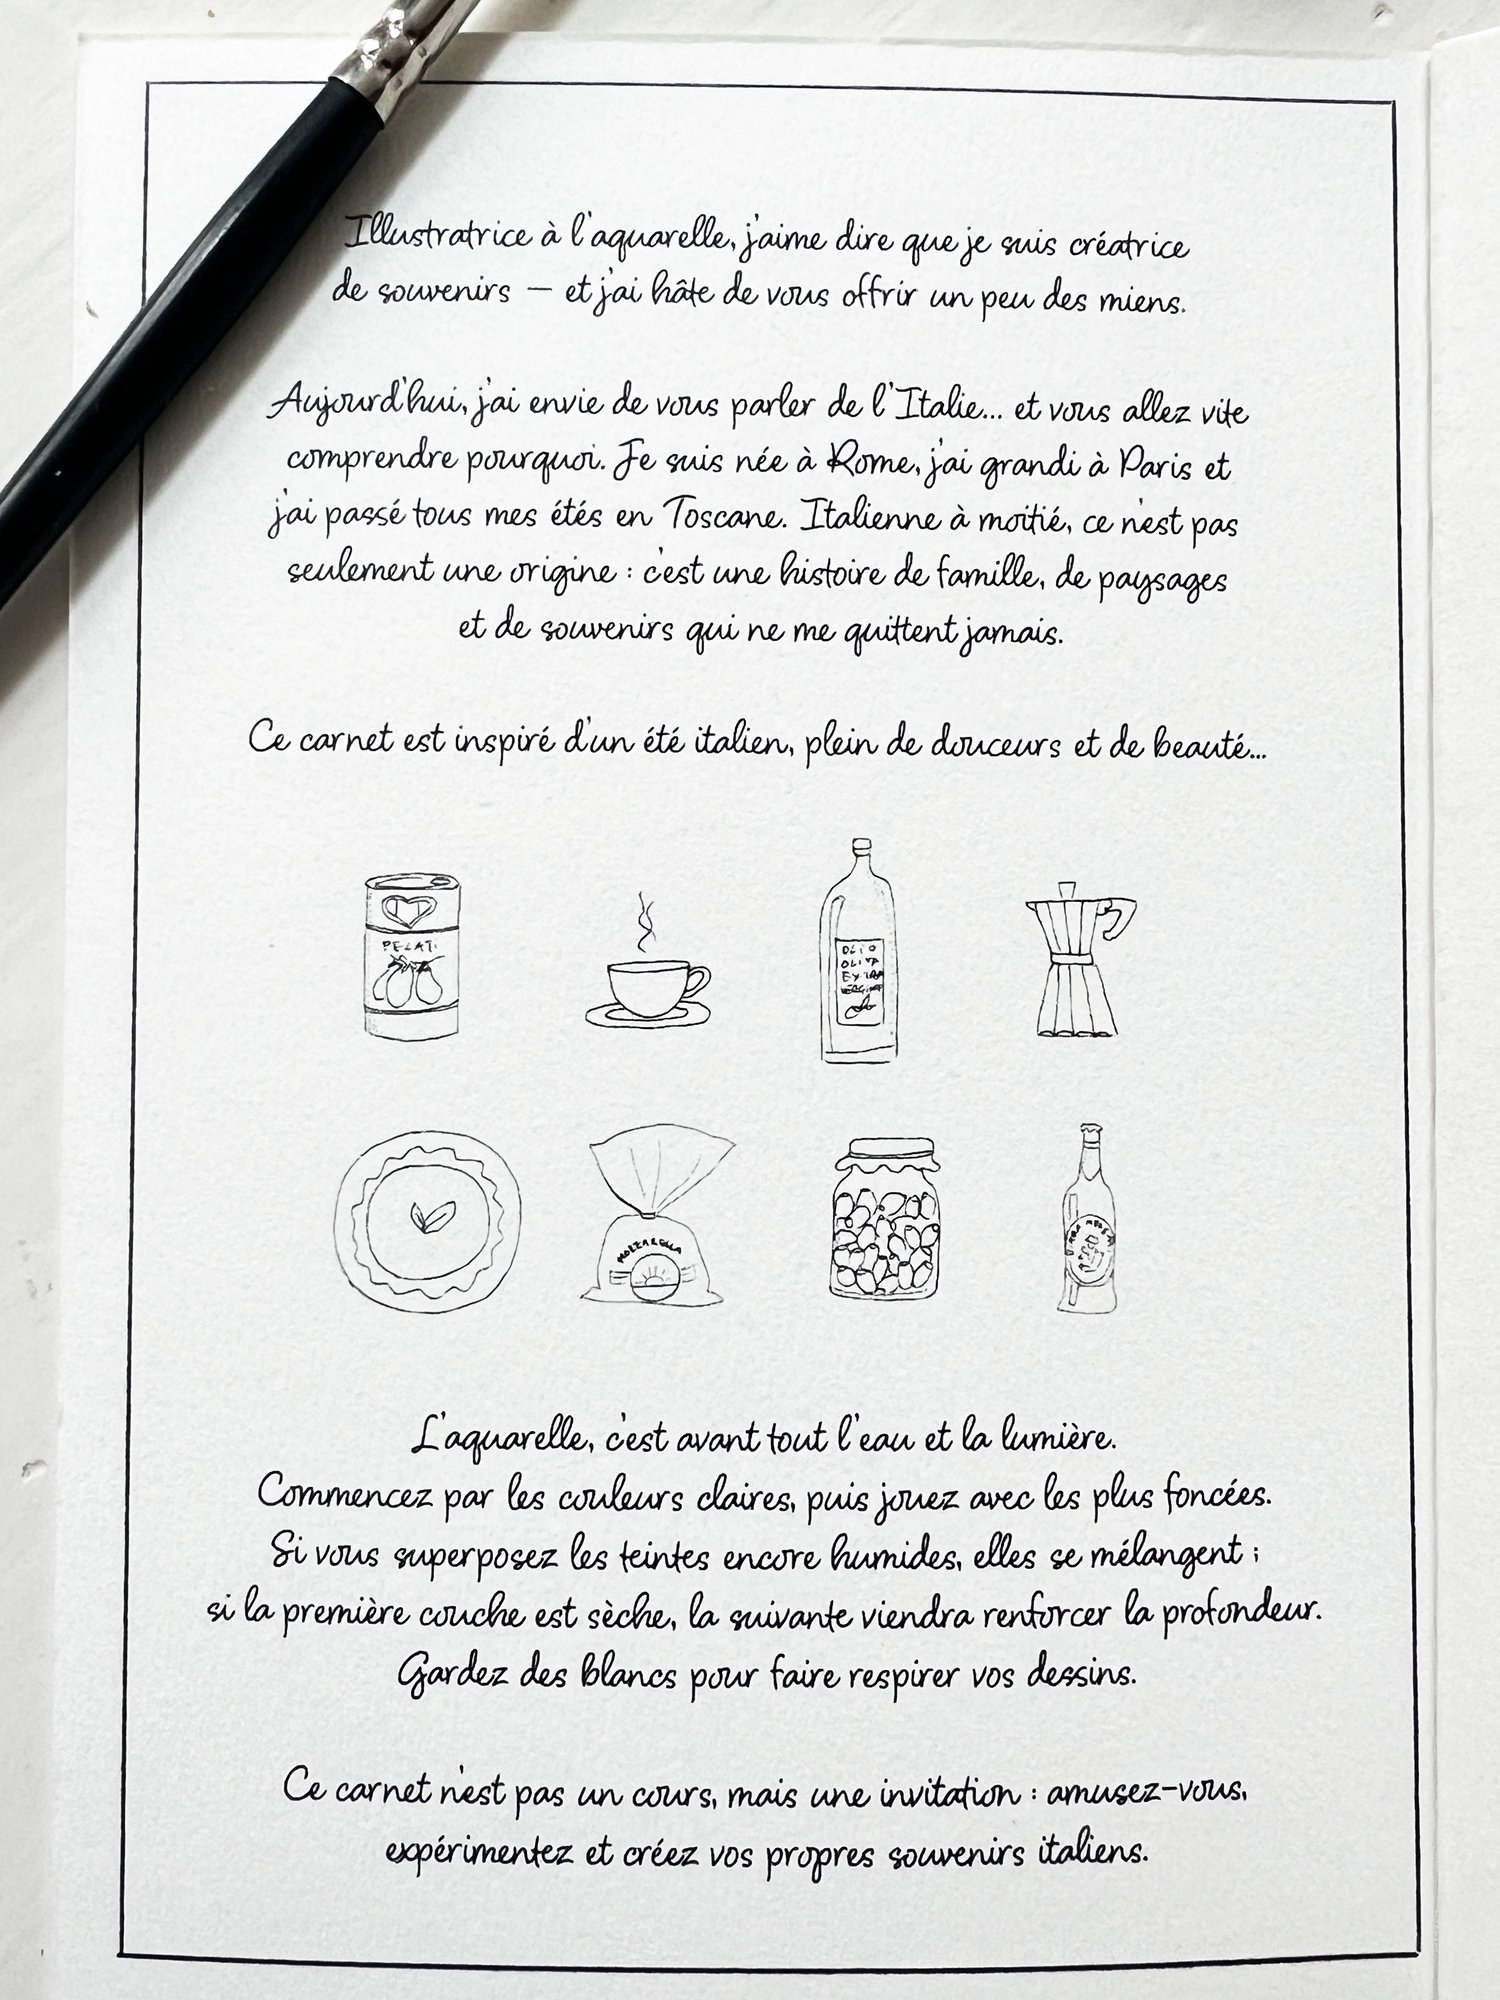 Illustratrice à l'aquarelle, j'aime dire que je suis créatrice
de souvenirs — et j'ai hâte de vous offrir un peu des miens.
Aujourd'hui, j'ai envie de vous parler de l'Italie... et vous allez vite
comprendre pourquoi. Je suis née à Rome, j'ai grandi à Paris et
j'ai passé tous mes étés en Toscane. Italienne à moitié, ce n'est pas
seulement une origine : c'est une histoire de famille, de paysages
et de souvenirs qui ne me quittent jamais.
Ce carnet est inspiré d'un été italien, plein de douceurs et de beauté...
PELATI
OLIO
OLIVA
EXTRA
MOZZARELLA
L'aquarelle, c'est avant tout l'eau et la lumière.
Commencez par les couleurs claires, puis jouez avec les plus foncées.
Si vous superposez les teintes encore humides, elles se mélangent ;
si la première couche est sèche, la suivante viendra renforcer la profondeur.
Gardez des blancs pour faire respirer vos dessins.
Ce carnet n'est pas un cours, mais une invitation : amusez-vous,
expérimentez et créez vos propres souvenirs italiens.